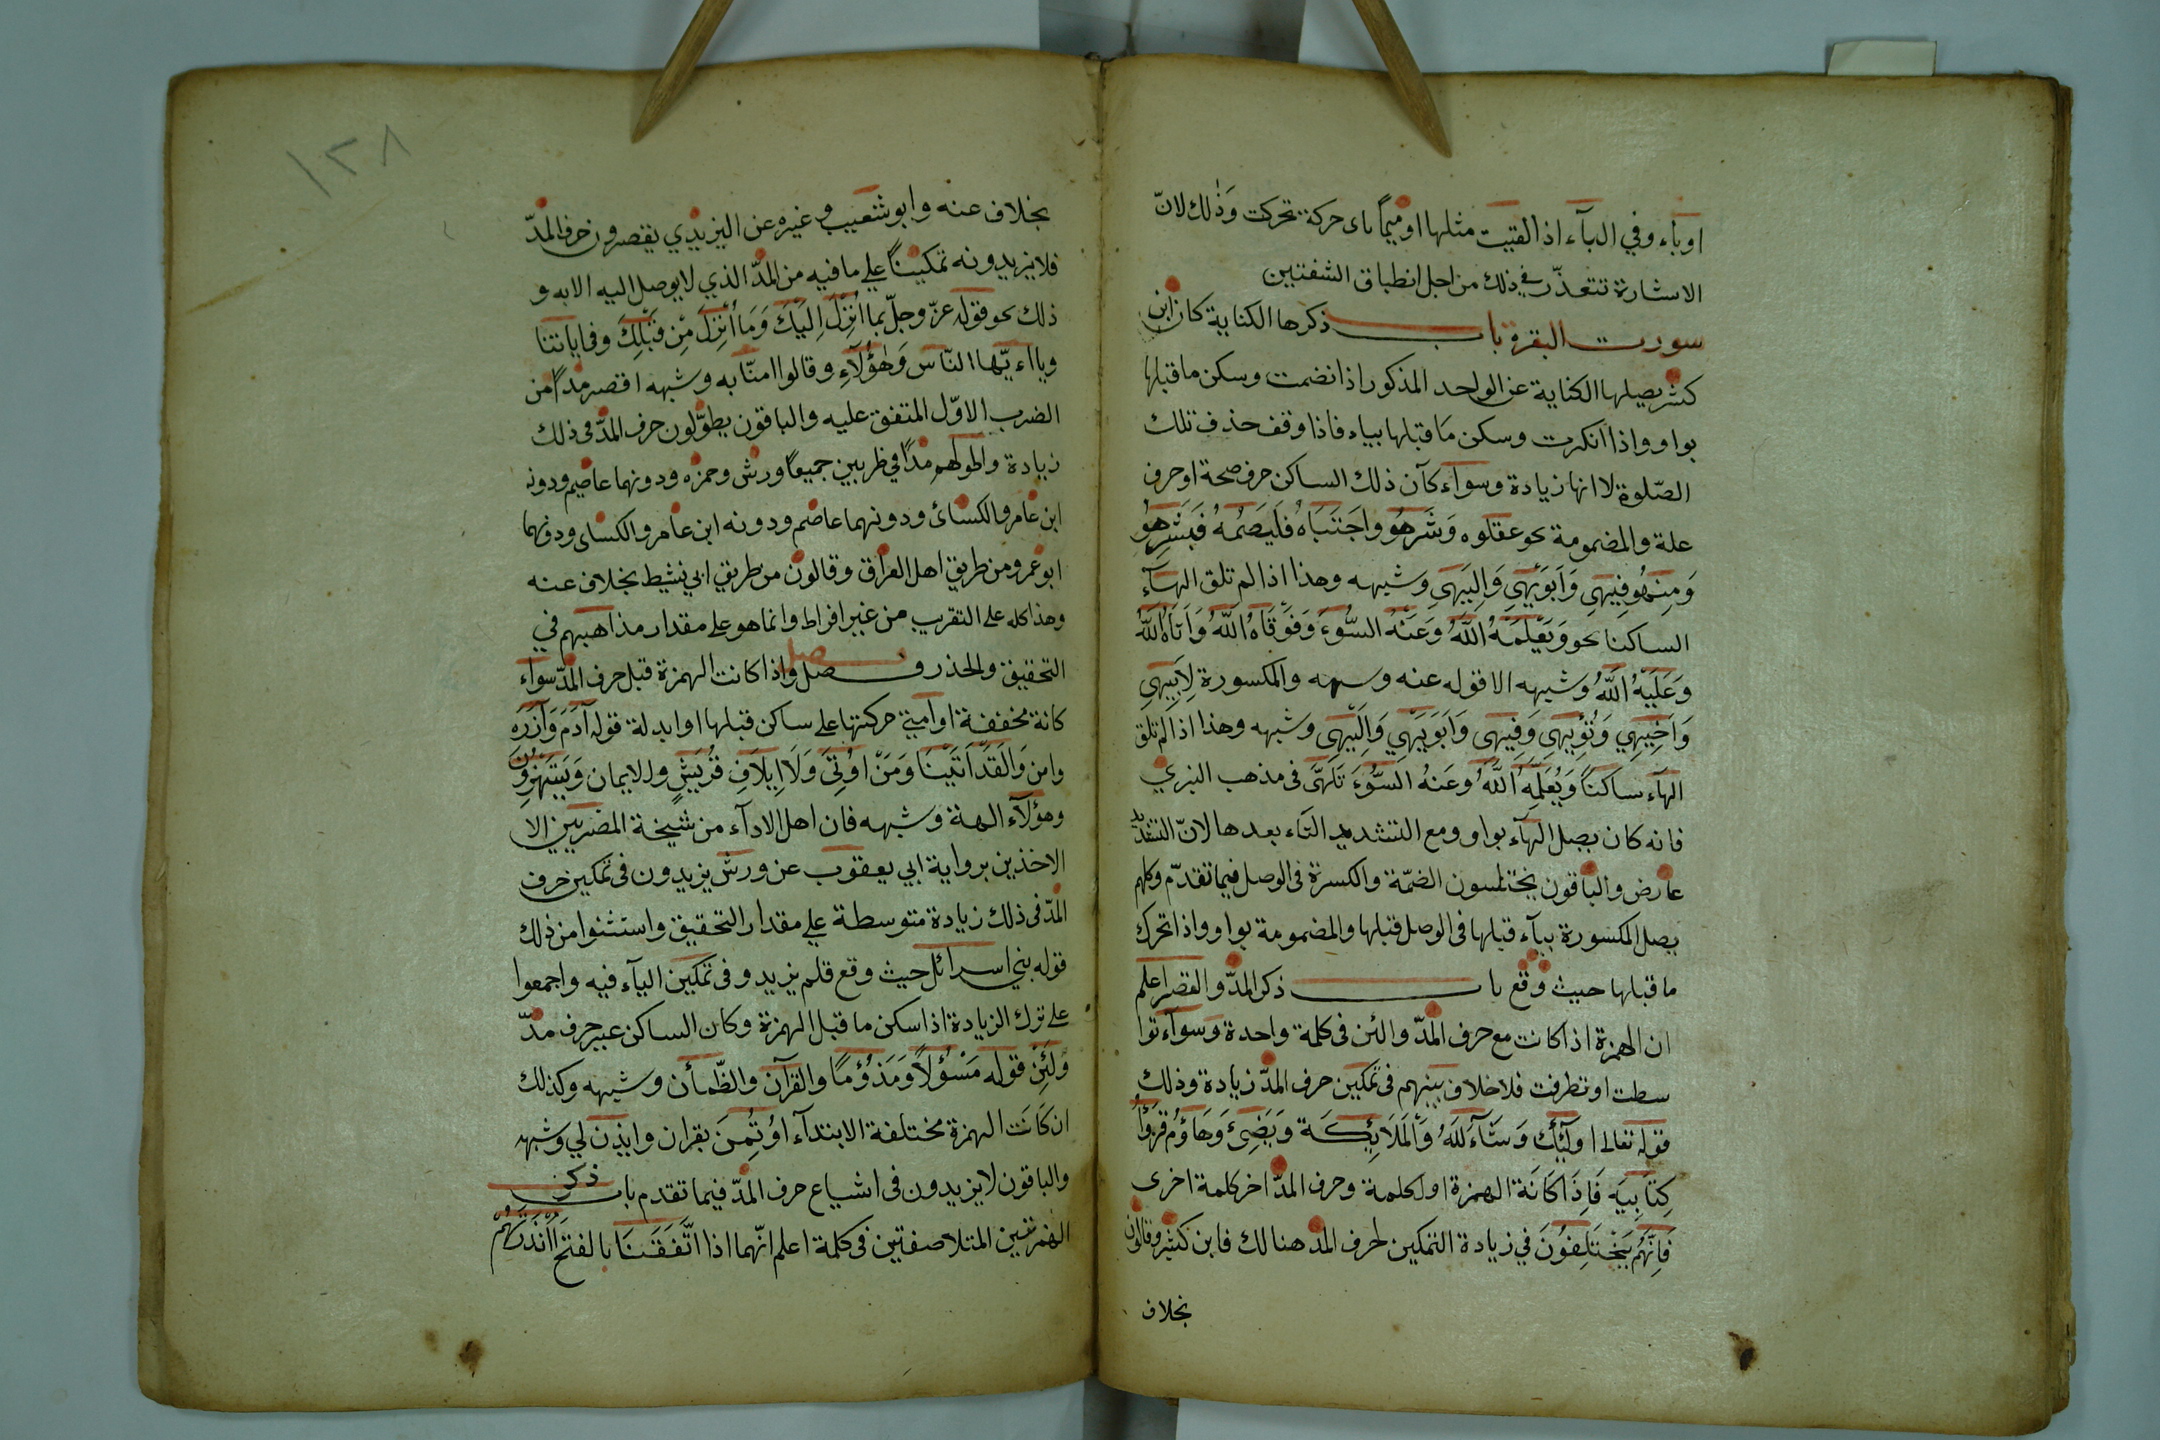 اوباء وفي البآء اذا لقيت مثلها او ميماً باى حركة تحركت وَذٰلك لانّ
الاشارة تتعذّر في ذلك من اجل انطباق الشفتين
سورت البقرة باب ذكرها الكناية كان ابن
كثير يصلها الكناية عن الواحد المذكور اذا نضمت وسكن ما قبلها
بواو واذا انكرت وسكن مَا قبلها بياء فاذا وقف حذف تلك
الصّلوة لا انها زيادة وسواء كآن ذلك الساكن حرف صحة او حرف
علة والمضمومة نحو عقلوه وَشَرهُو واجَتَبَاهُ فَليَصَمُهُ فَبَشِّرهُو
وَمِنهُو فِيهِي وَاَبَوَيهِي وَاِليَهىِ وشبهه وهذا اذا لم تلق الهآء
الساكنا نحو وَيَعْلَمَهُ اللَّهُ وَعَنْهُ السُّوءَ وَفَوَقَاهُ اللَّهُ وَاَتَاهُ اللَّهُ
وَعَلَيَهُ اللَّهُ وشبهه الا قوله عنه وسهه والمكسورة لِاَبِيهِي
وَاَخِيِهِي وَنُؤِيِهِي وَفِيهِى وَاَبَوَيَهِي وَاِلَيْهِى وشبهه وهذا اذا لم تلق
الهآء ساكنَاً وَيُعَلِّمِهُ اللَّهُ وعَنهُ السَّوُءَ تَلَهىَّ فى مذهب البزي
فانه كان يصل الهآء بواو ومع التشديد التاء بعدها لانّ التشديد
عارض والباقون يختلسون الضمّة والكسرة فى الوصل فيما تقدّم وكلهم
يصل المكسورة بيآء قبلها فى الوصل قبلها والمضمومة بواو واذا تحرك
ما قبلها حيث وقع باب ذكر المدّ والقصر اعلم
ان الهمزة اذا كانت مع حرف المدّ والئن فى كلمة واحدة وسوآء توا
سطت او تطرفت فلا خلاف بينهم فى تمكين حرف المدّ زيادة وذلك
قوله تعالى اولَئِكَ وَشَآءَ اللَهُ وَالْمَلَائِكَة وَيَضِىَٔ وَهَاؤُم قرَؤُاْ
كِتَابِيَه فَاِذَا كَانَة الهمزة اول كلمة وحرف المدّ اخر كلمة اخرى
فَاِنَّهُم يَخْتَلِفُونَ في زيادة التمكين لحرف المدّ هنالك فابن كثير وقالون
بخلاف
١٣٨
بخلاف عنه وابو شعيب وغيره عن اليزيدي يقصرون حرف المدّ
فلا يزيدونه تمكيناً علي ما فيه من المدّ الذي لا يوصل اليه الا به و
ذلك نحو قوله عزّ وجلّ بما اُنْزِلَ اِلَيْكَ وَمَا اُنْزِلَ مِن قَبْلِكَ وفى اياتنا
ويااءيّها النّاس وَهٰؤُلَآءِ وقالوا امنّا به وشبهه اقصر مدّاً من
الضرب الاوّل المتفق عليه والباقون يطوّلون حرف المدّ فى ذلك
زيادة والطولهم مدّاً في ظربين جميعاً ورش وحمزه ودونهما عاصم ودونه
ابن عامر والكسائ ودونهما عاصم ودونه ابن عامر والكساى ودونهما
ابو عمرو من طريق اهل العراق وقالون من طريق ابي نشيط بخلاف عنه
وهذا كله على التقرب من غير افراط وانما هو على مقدار مذاهبهم في
التحقيق والحذر فصل واذا كانت الهمزة قبل حرف المدّ سواء
كانة مخففة او امية حركتها على ساكن قبلها او ابدلة قوله آدَمَ وَآزَرَه
وامن وَالَقَدَّاتَيْنَا وَمَنْ اوُتِىَ وَلَا اِيلَافِ قُرُيَشٍ وللايمان وَيَسَتَهزِؤُنَ
وهؤلآء الهة وشبهه فان اهل الادآء من شيخة المضريين الا
الاخذين برواية ابي يعقوب عن ورش يزيدون فى تمكين حرف
المدّ فى ذلك زيادة متوسطة علي مقدار التحقيق واستثنوا من ذلك
قوله بني اسرائل حيث وقع قلم يزيدو فى تمكين اليآء فيه واجمعوا
على ترك الزيادة اذا سكن ما قبل الهمزة وكان الساكن غير حرف مدّ
وَلَئِنْ قوله مَسْؤُلاً وَمَذؤُمًا والقرآن والظّمأن وشبهه وكذلك
ان كَانَت الهمزة مختلفة الابتدآء اوُتُمِنَ بقران وايذن لي وشبهه
والباقون لا يزيدون فى اشياع حرف المدّ فيما تقدم باب ذكر
الهمزتين المتلاصفتين فى كلمة اعلم انّهما اذا اتَّفَقَنَا بالفتح ءَاَنْذَرتَهُمْ